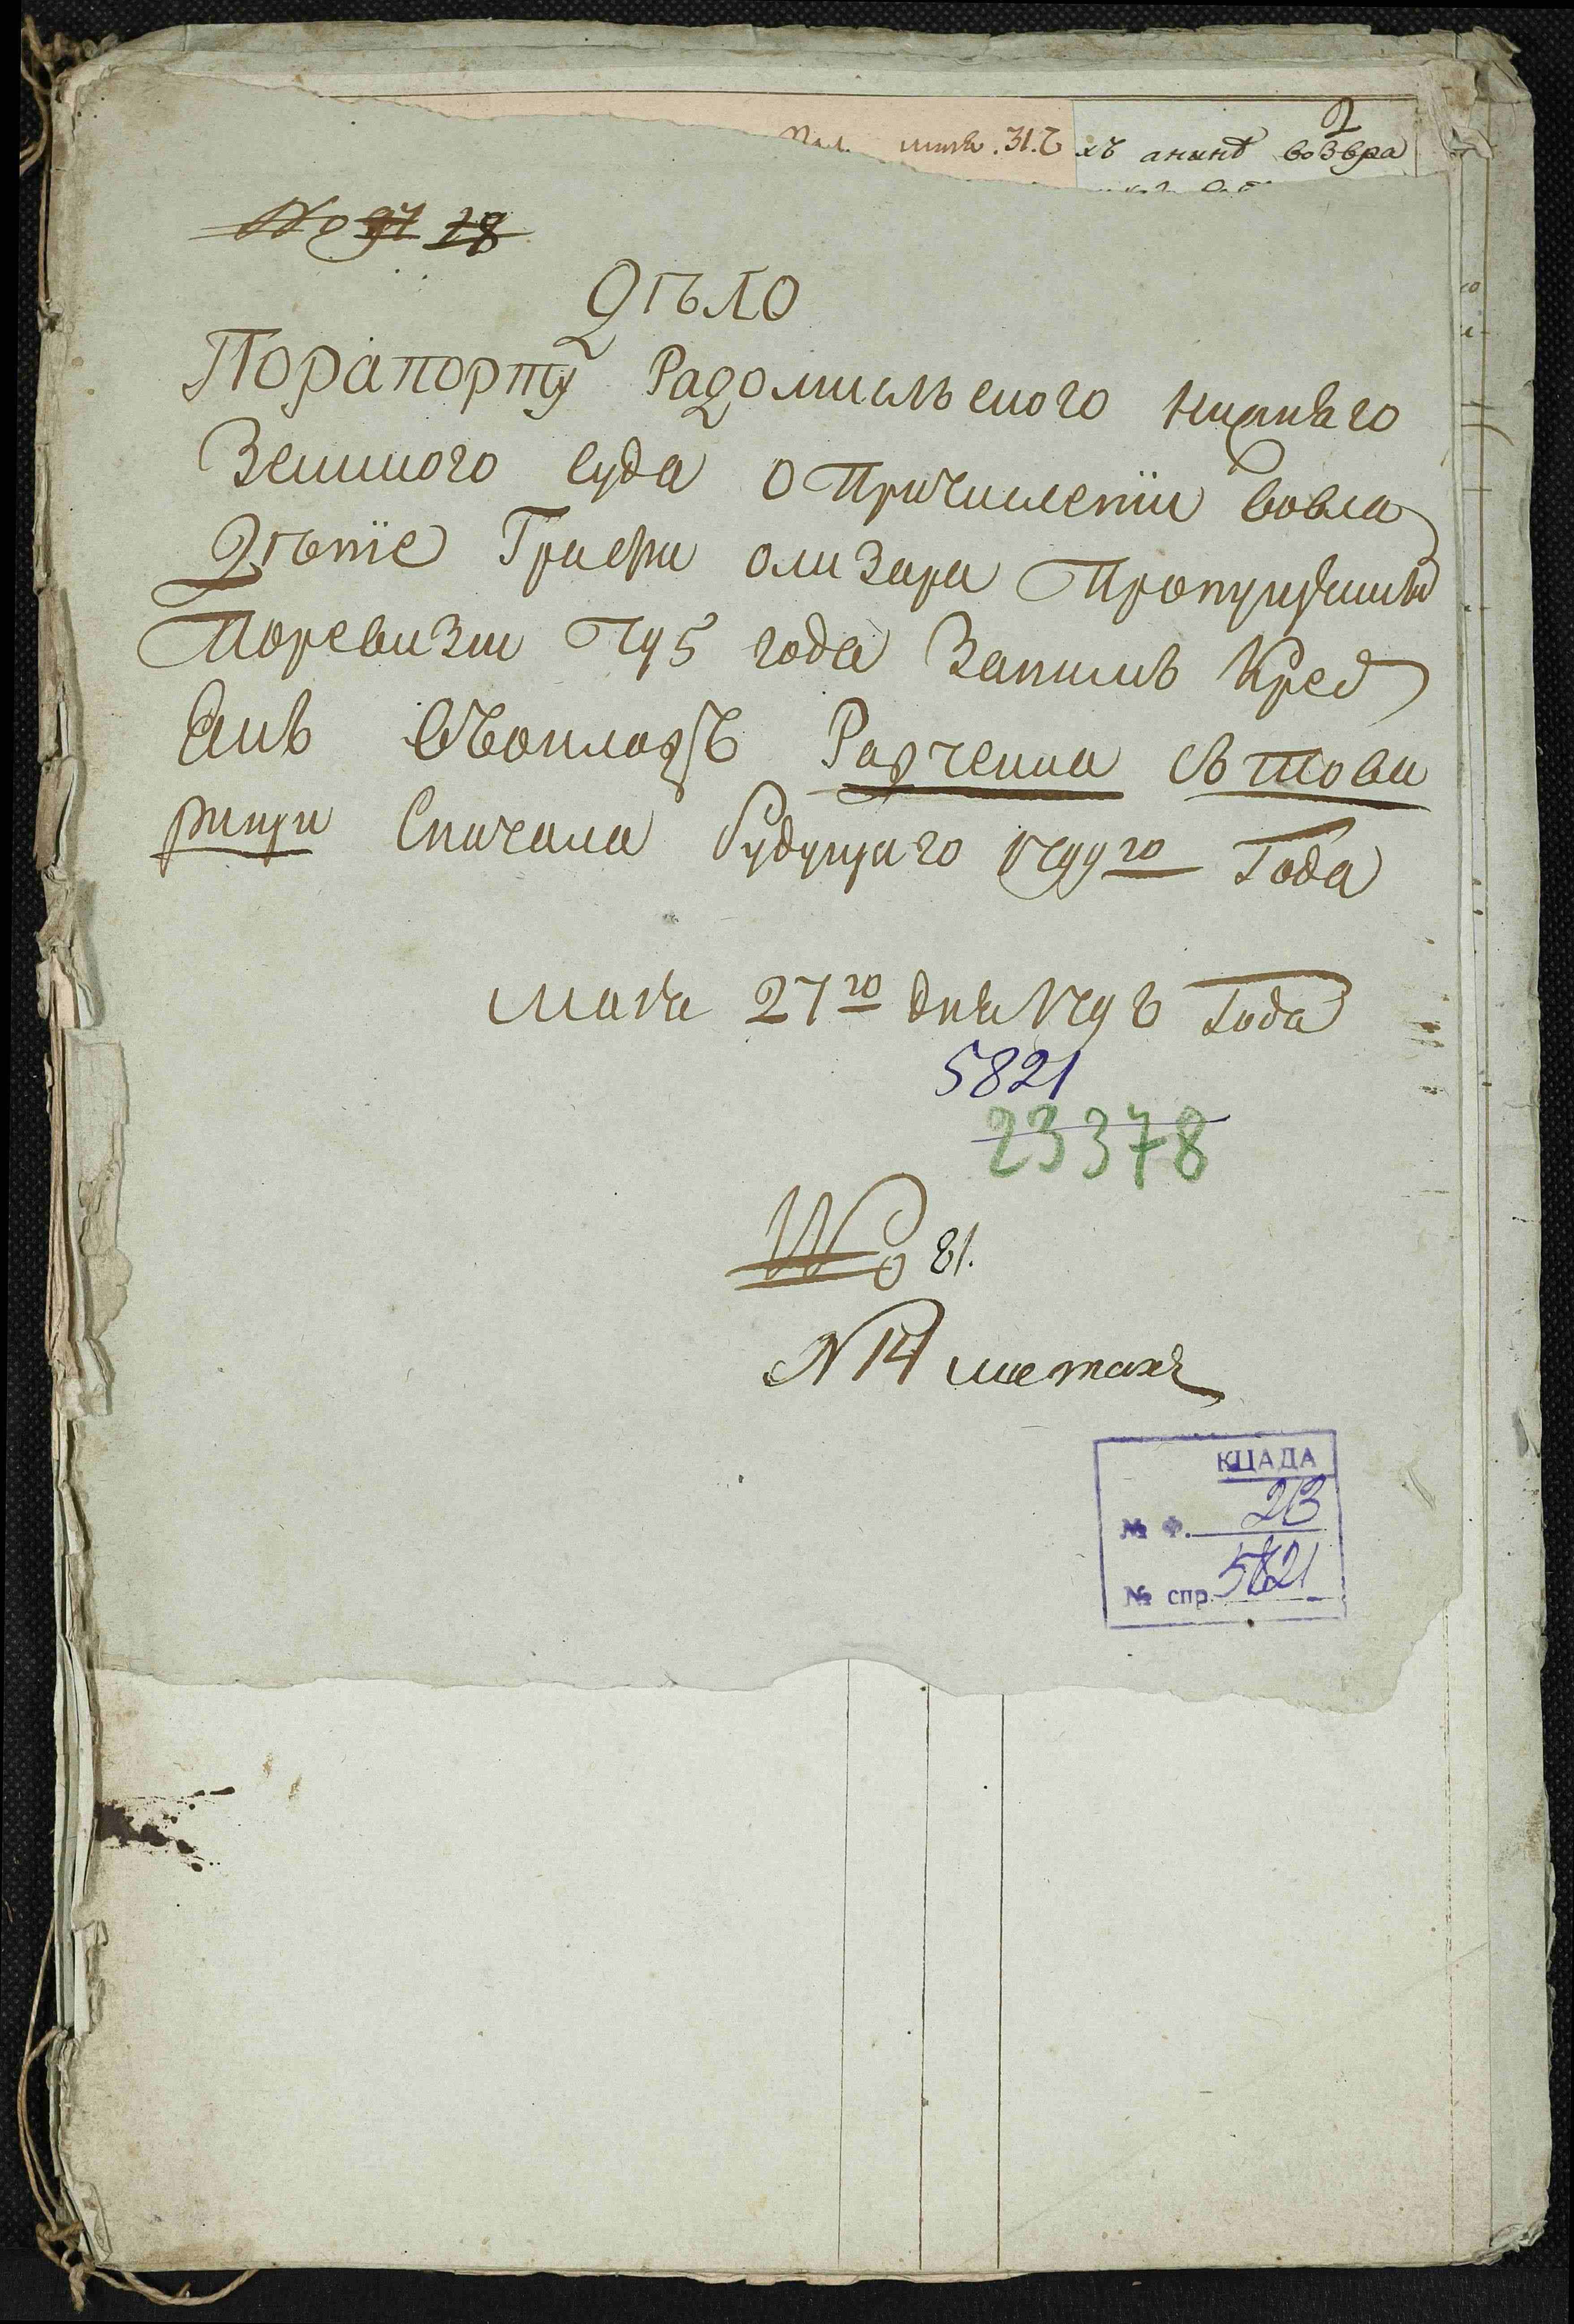 2
хъ анынѣ возвра
№ 91 28
Дѣло
Порапорту Радомисльского нижняго
Земского суда О Причисленіи вовла
Дѣніе Графи олизара Пропущенныхъ
Поревизіи 795 года Запись Крест
Янъ Радченка Съ Това
рищи Сначала будущаго 1799го Года
маія 27го дня 1798 Года
5821
23378
№ 81.
N 14 листахъ
КЦАДА
№ Ф. 2В
№ спр. 5821